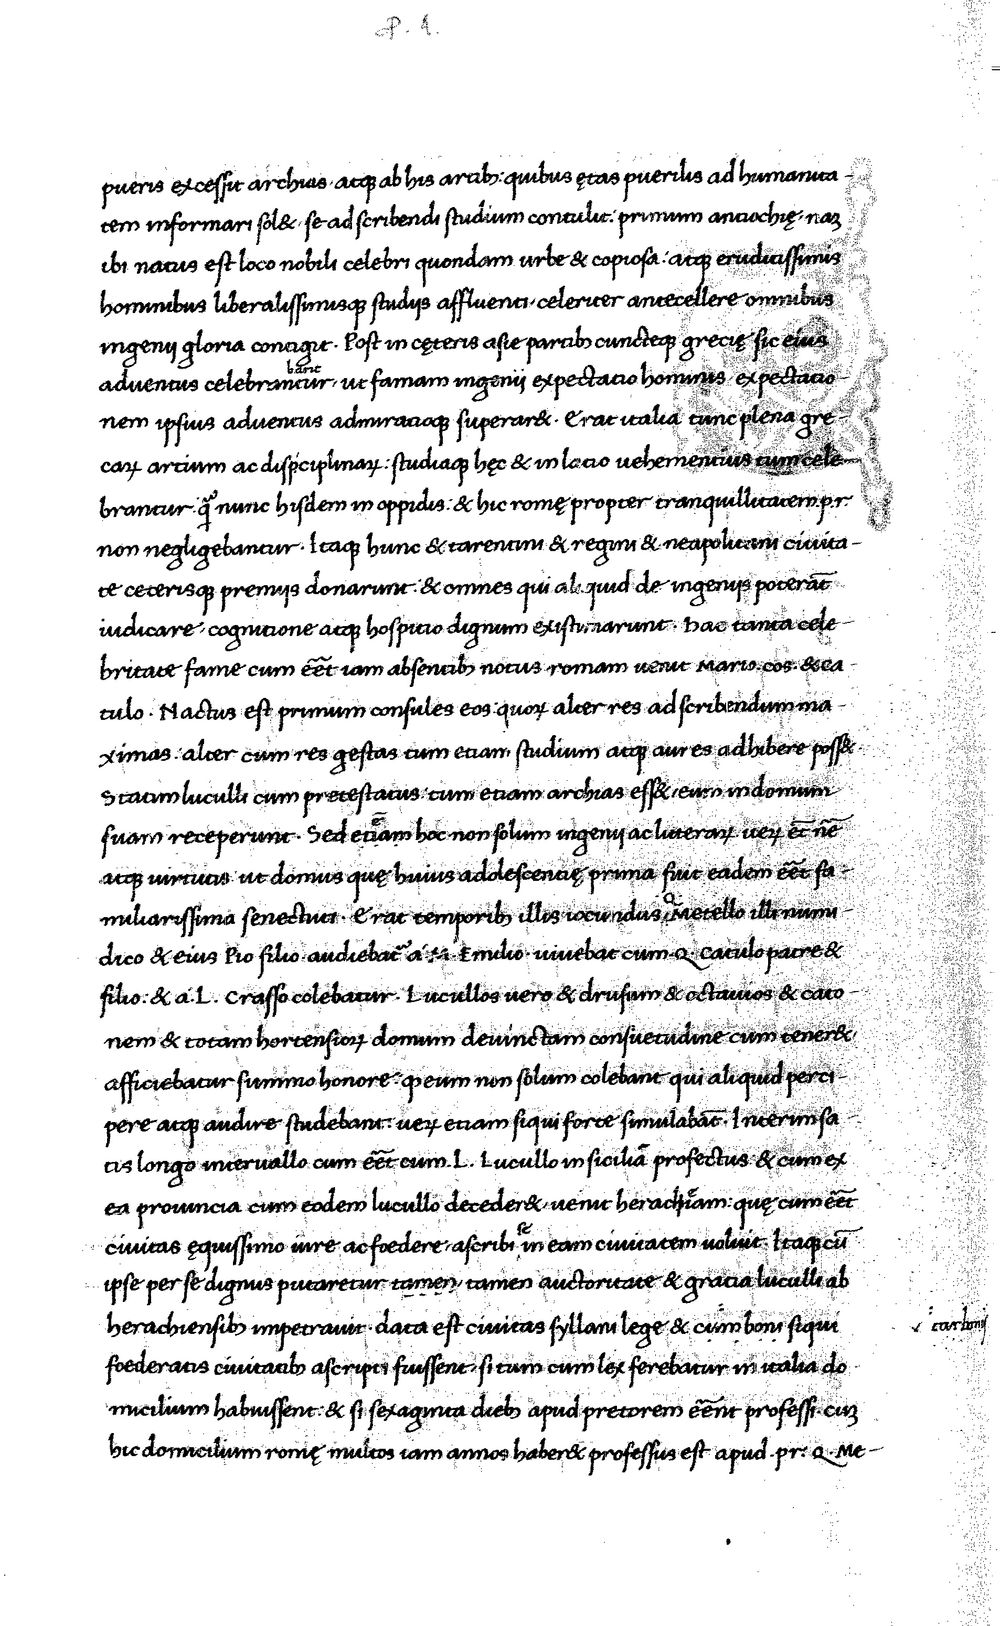 P. 1.
pueris excessit archias· atqꝫ ab his artibꝫ: quibus ętas puerilis ad humanita-
tem informari sol&· se ad scribendi studium contulit: primum antiochię· naꝫ
ibi natus est loco nobili celebri quondam urbe & copiosa: atqꝫ eruditissimis
hominibus liberalissimisqꝫ studijs affluenti· celeriter antecellere omnibus
ingenij gloria contigit· Post in cęteris asie partibꝫ cuncteqꝫ grecię sic eius
bant
aduentus celebrantur· ut famam ingenij expectatio hominis· expectatio-
nem ipsius aduentus admiratioqꝫ superar&· Erat italia tunc plena gre-
caꝝ artium ac disciplinaꝝ: studiaqꝫ hęc & in latio uehementius tum cele-
brantur· qͣ nunc hisdem in oppidis: & hic romę propter tranquillitatem p.r.
non negligebantur· Itaqꝫ hunc & tarentini & regini & neapolitani ciuita-
te ceterisqꝫ premijs donarunt: & omnes qui aliquid de ingenijs poterāt
iudicare· cognitione atqꝫ hospitio dignum existimarunt· hac tanta cele-
britate fame cum eēt iam absentibꝫ notus romam uenit Mario· cos· & ca-
tulo· Nactus est primum consules eos: quoꝝ alter res ad scribendum ma-
ximas: alter cum res gestas tum etiam studium atqꝫ aures adhibere poss&·
Statim luculli cum pretestatus: tum etiam archias ess&· eum in domum
suam receperunt· Sed etiam hoc non solum ingenij ac litteraꝝ ueꝝ et nē
atqꝫ uirtutis ut domus quę huius adolescentię prima fuit eadem eēt fa-
miliarissima senectuti· Erat temporibꝫ illis iocundus Q Metello illi numi-
dico & eius Pio filio· audiebat a M· Emilio· uiuebat cum Q· Catulo patre &
filio: & a L. Crasso colebatur· Lucullos uero & drusum & octauios & cato-
nem & totam hortensioꝝ domum deuinctam consuetudine cum tener&·
afficiebatur summo honore· ꝙ eum non solum colebant qui aliquid perci-
pere atqꝫ audire studebant: ueꝝ etiam siqui forte simulabāt· Interim sa-
tis longo interuallo cum eēt cum L. Lucullo in siciliā profectus & cum ex
ea prouincia cum eodem lucullo deceder&· uenit heracliam: quę cum eēt
ciuitas ęquissimo iure ac foedere· ascribi se in eam ciuitatem uoluit· Itaqꝫ cū
ipse per se dignus putaretur tamen· tamen auctoritate & gratia luculli ab
heracliensibꝫ impetrauit· data est ciuitas syllani lege & cum boni siqui
carbonis
foederatis ciuitatibꝫ ascripti fuissent· si tum cum lex ferebatur in italia do-
micilium habuissent: & si sexaginta diebꝫ apud pretorem eēnt professi· cuꝫ
hic domicilium romę multos iam annos haber& professus est apud· pr: Q· Me-